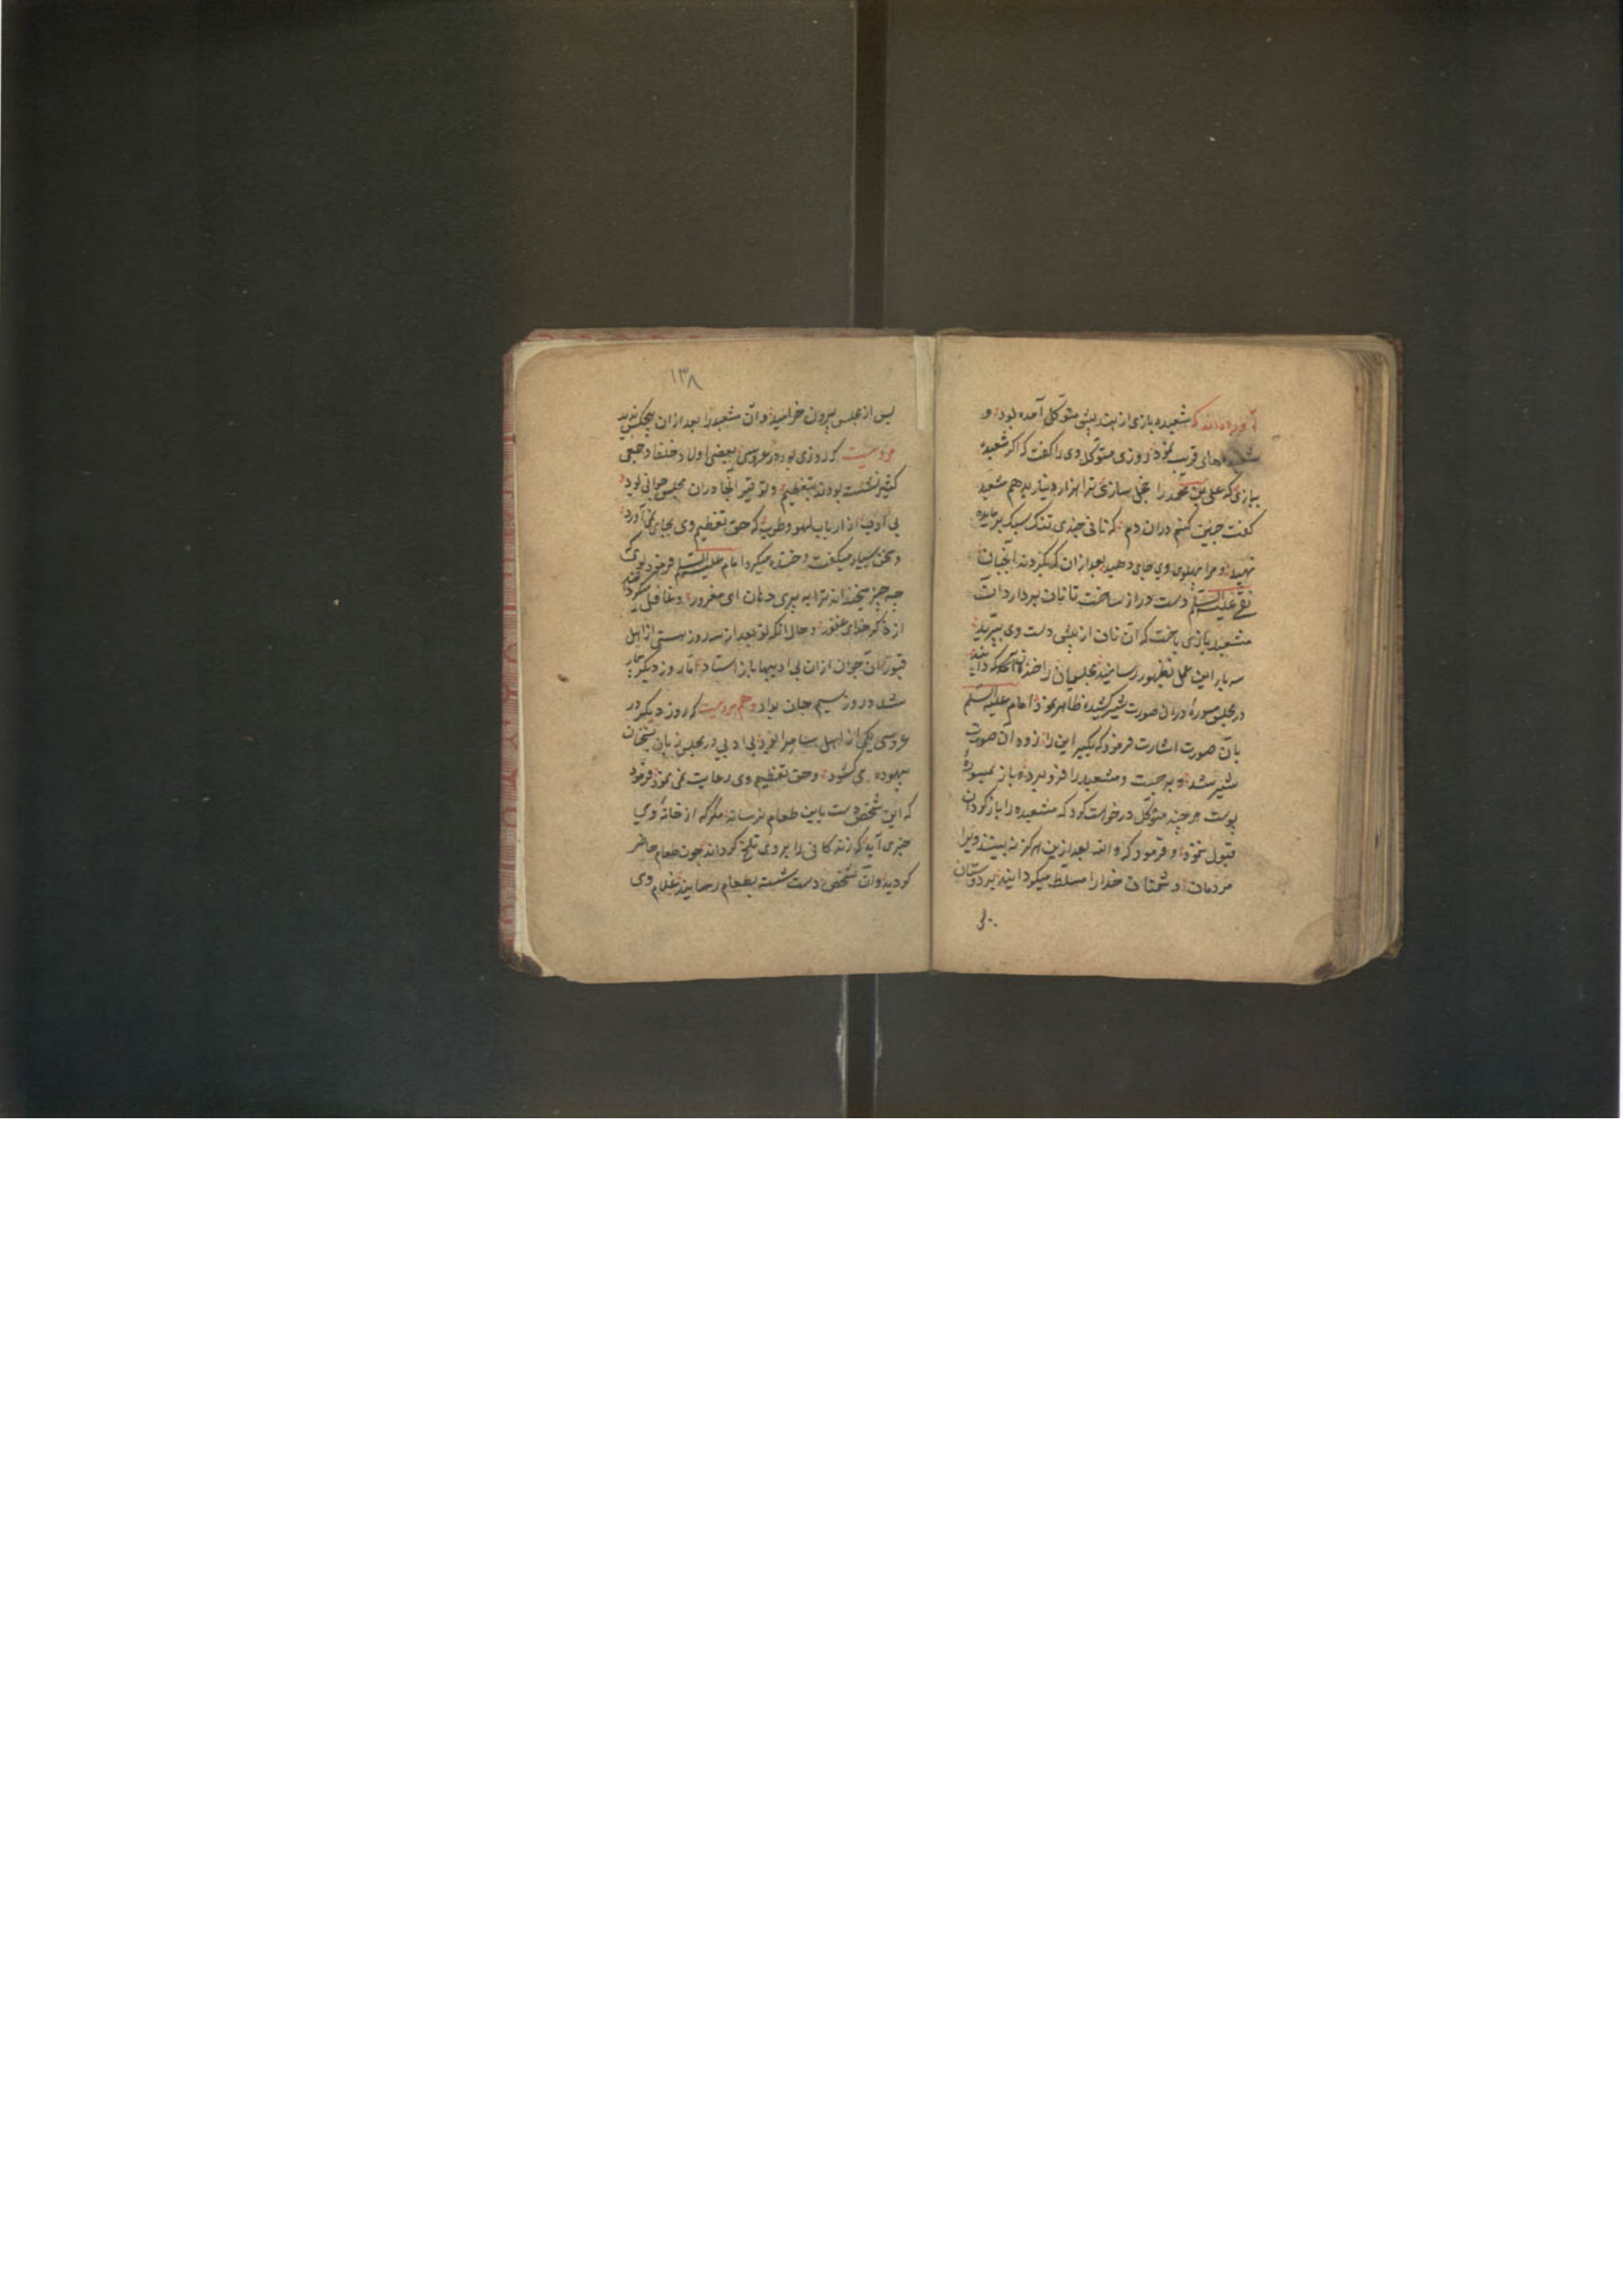 آورده‌اند که شعبده بازی از هند پیش متوکل آمده بود و
شعبدهای غریب نمود روزی متوکل وی را گفت که اگر شعبده
بیازی که علی بن محمد را خجل سازی ترا هزار دینار بدهم مشعبد
گفت چنین کنم در آن دم که نانی چندی تنک سبک بر مایده
نهید و مرا پهلوی وی جای دهید بعد از آن که کردند آنچنان
نقی علیه السلام دست دراز ساخت تا نان بردارد آن
مشعبد بازی باخت که آن نان از پیش دست وی بپرید
سه بار این عمل بظهور رسانید مجلسیان را خنده
در مجلس مسوره در آن صورت شیر کشیده ظاهر نمود امام علیه السلم
بآن صورت اشارت فرمود که بگیر این را زود آن صورت
شیر شد و برجست و مشعبد را فرو برد و باز بمسوره
پیوست هر چند متوکل درخواست کرد که مشعبده را باز گردان
قبول ننمود و فرمود که والله بعد ازین هرگز نه بینند ویرا
مردمان دشمنان خدا را مسلط میگردانید بر دوستان
۱۳۸
پس از مجلس بیرون خرامید و آن مشعبد را بعد از آن هیچکس ندید
مرویست که روزی بود در عروسی بعضی اولاد خلفا و جمعی
کثیر نشسته بودند بتعظیم و توقیر آنجا در آن مجلس جوانی بود
بی ادب از ارباب لهو و طرب که حق تعظیم وی بجای نمی آورد
و سخن بسیار میگفت و خنده میکرد امام علیه السلم فرمود
چه چیز میخنداند ترا به پری دهان ای مغرور و غافل
از ذکر خدای غفور و حال آنکه تو بعد از سه روز هستی از اهل
قبور آن جوان از آن بی ادبیها باز استاد اما روز دیگر بیمار
شد در روز سیم جان بداد و هم مرویست که روز دیگر در
عروسی یکی از اهل سامرا نیز بی ادبی در مجلس زبان بسخنان
بیهوده می کشود و حق تعظیم وی رعایت نمی نمود فرمود
که این شخص دست باین طعام نرساند مگر که از خانه وی
خبری آید که زندگانی را بروی تلخ گرداند چون طعام حاضر
گردید و آن شخص دست شسته بطعام رسانید غلام وی